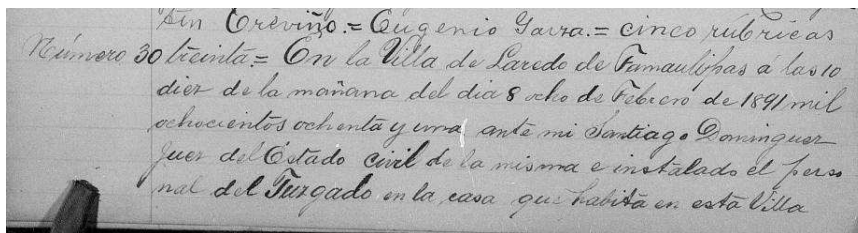 tin Treviño.= Eugenio Garza.= cinco rúbricas
Número 30 treinta.= En la Villa de Laredo de Tamaulipas á las 10
diez de la mañana del dia 8 ocho de Febrero de 1891 mil
ochocientos ochenta y uno ante mi Santiago Dominguez
Juez del Estado civil de la misma e instalado el perso
nal del Juzgado en la casa que habita en esta Villa